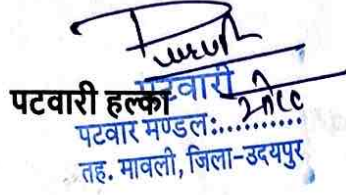 पटवारी
पटवारी हल्का
पटवार मण्डल:..........
तह. मावली, जिला-उदयपुर